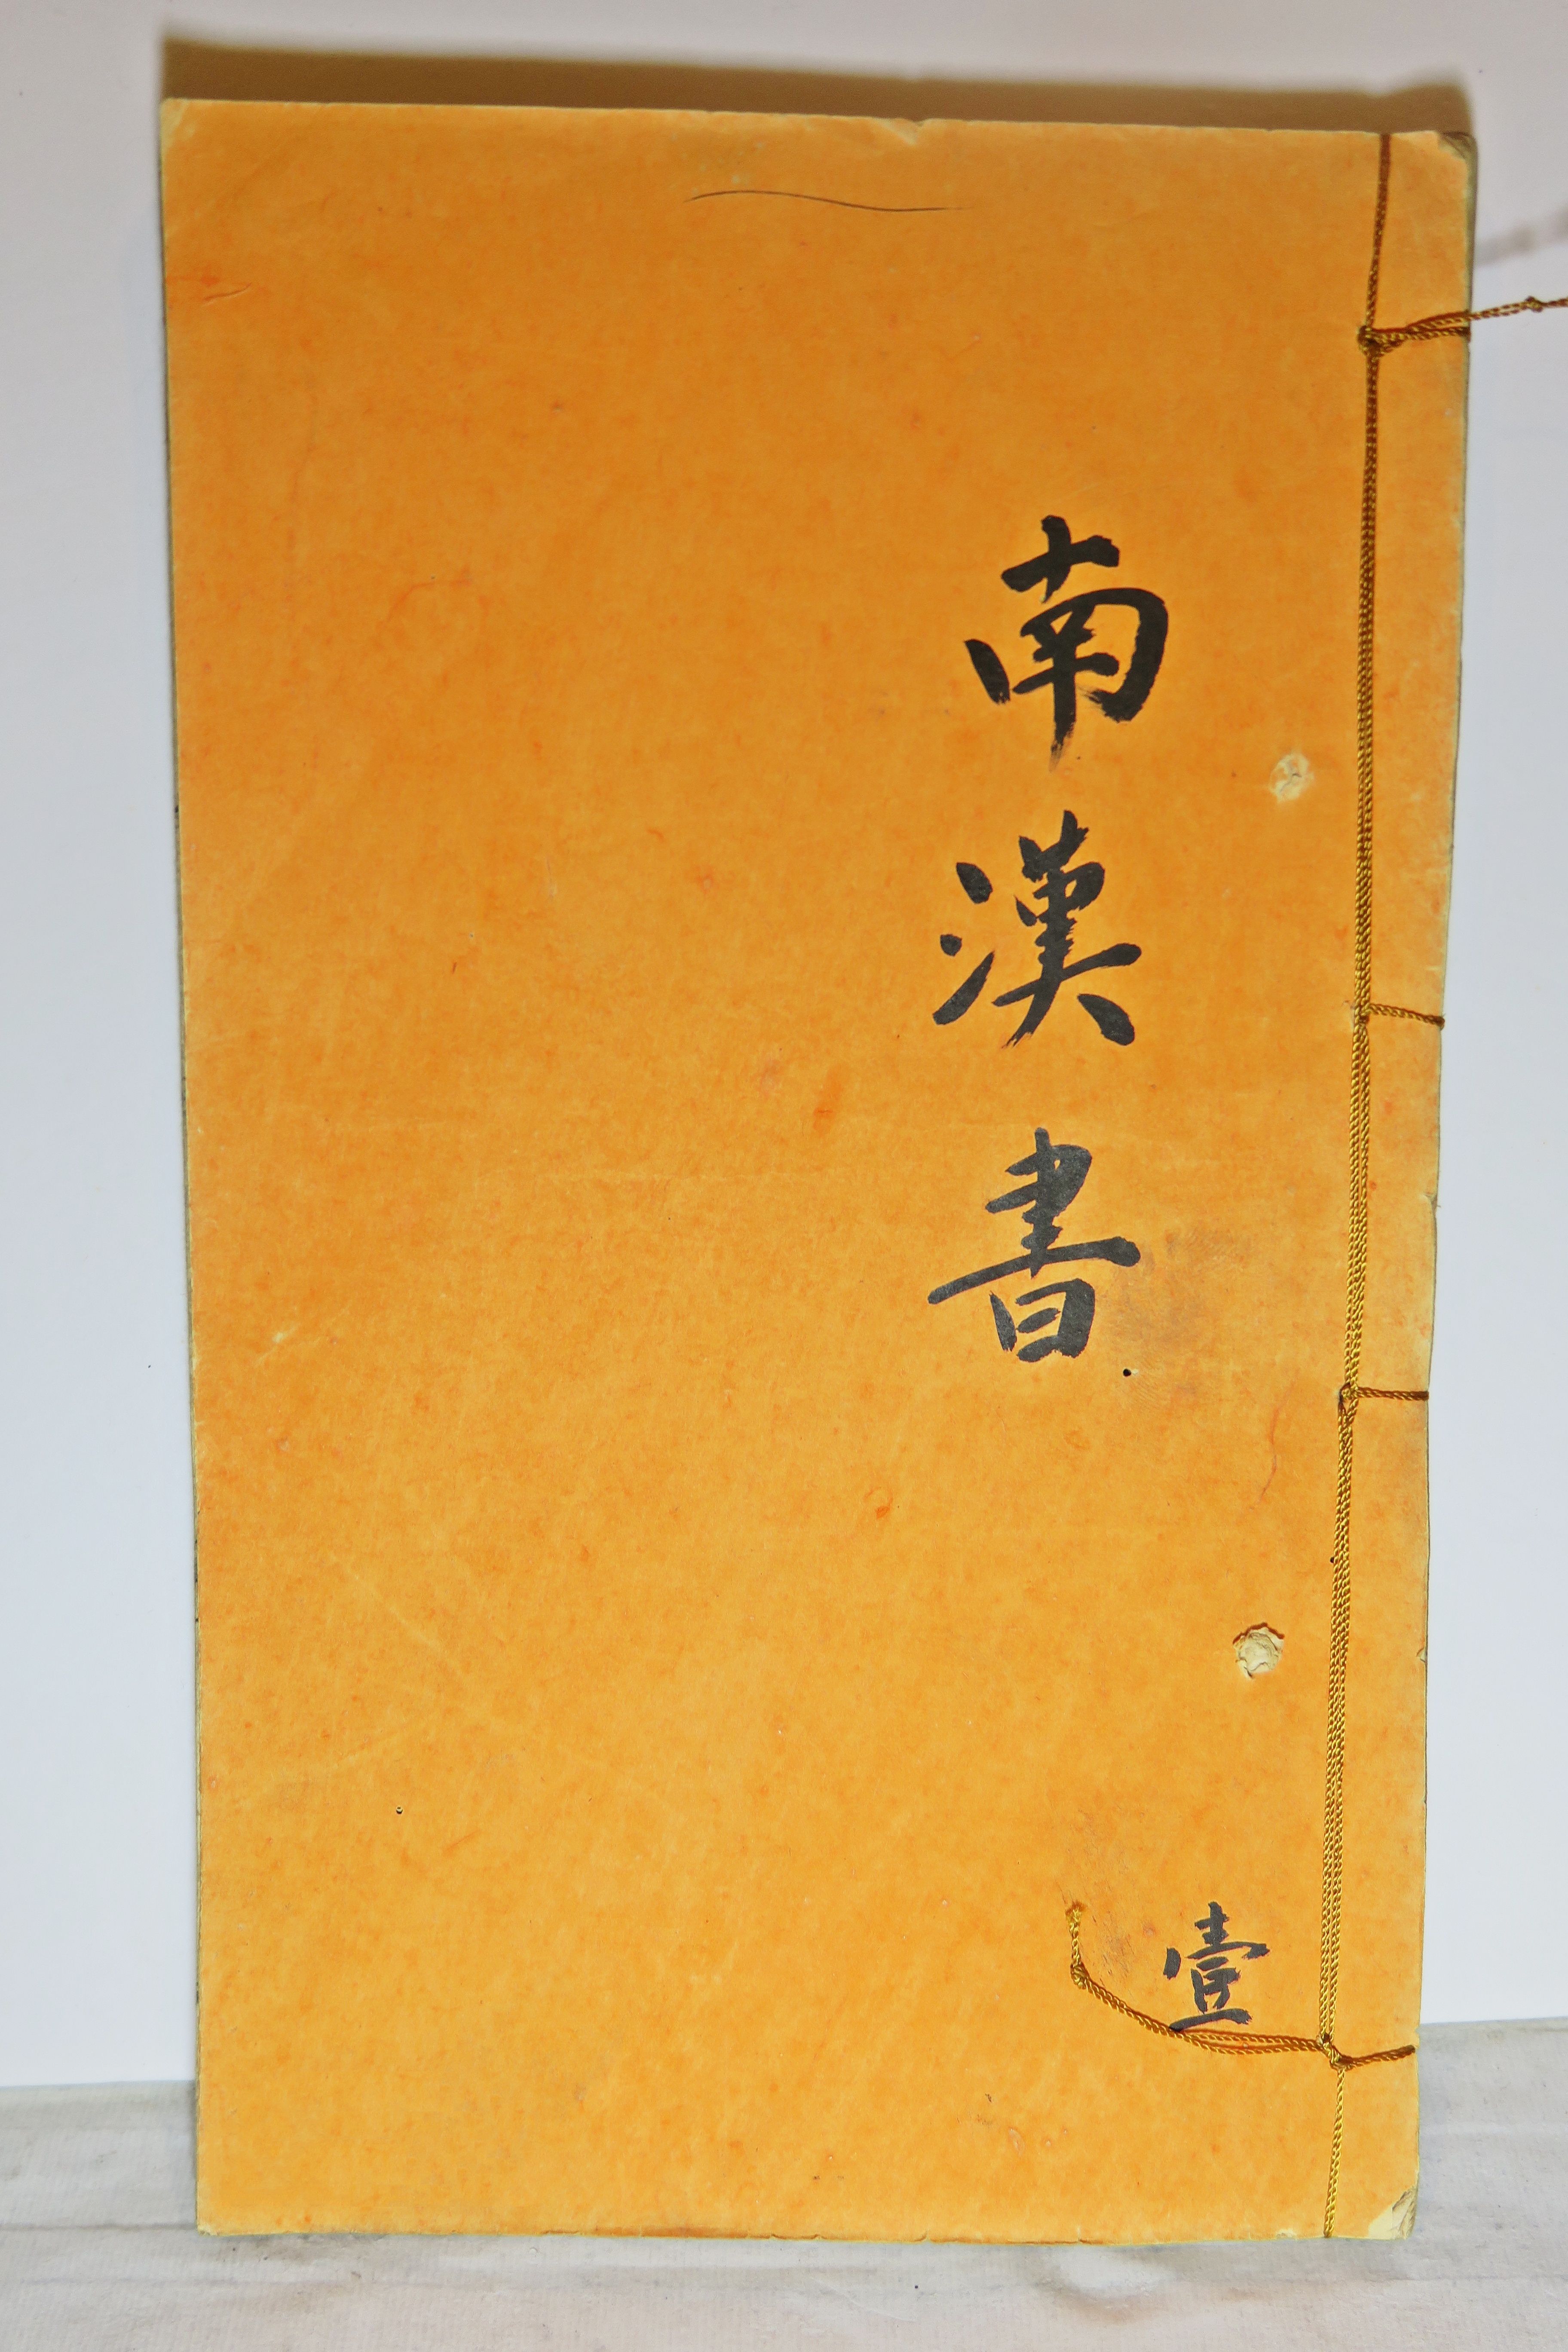 南漢書
壹